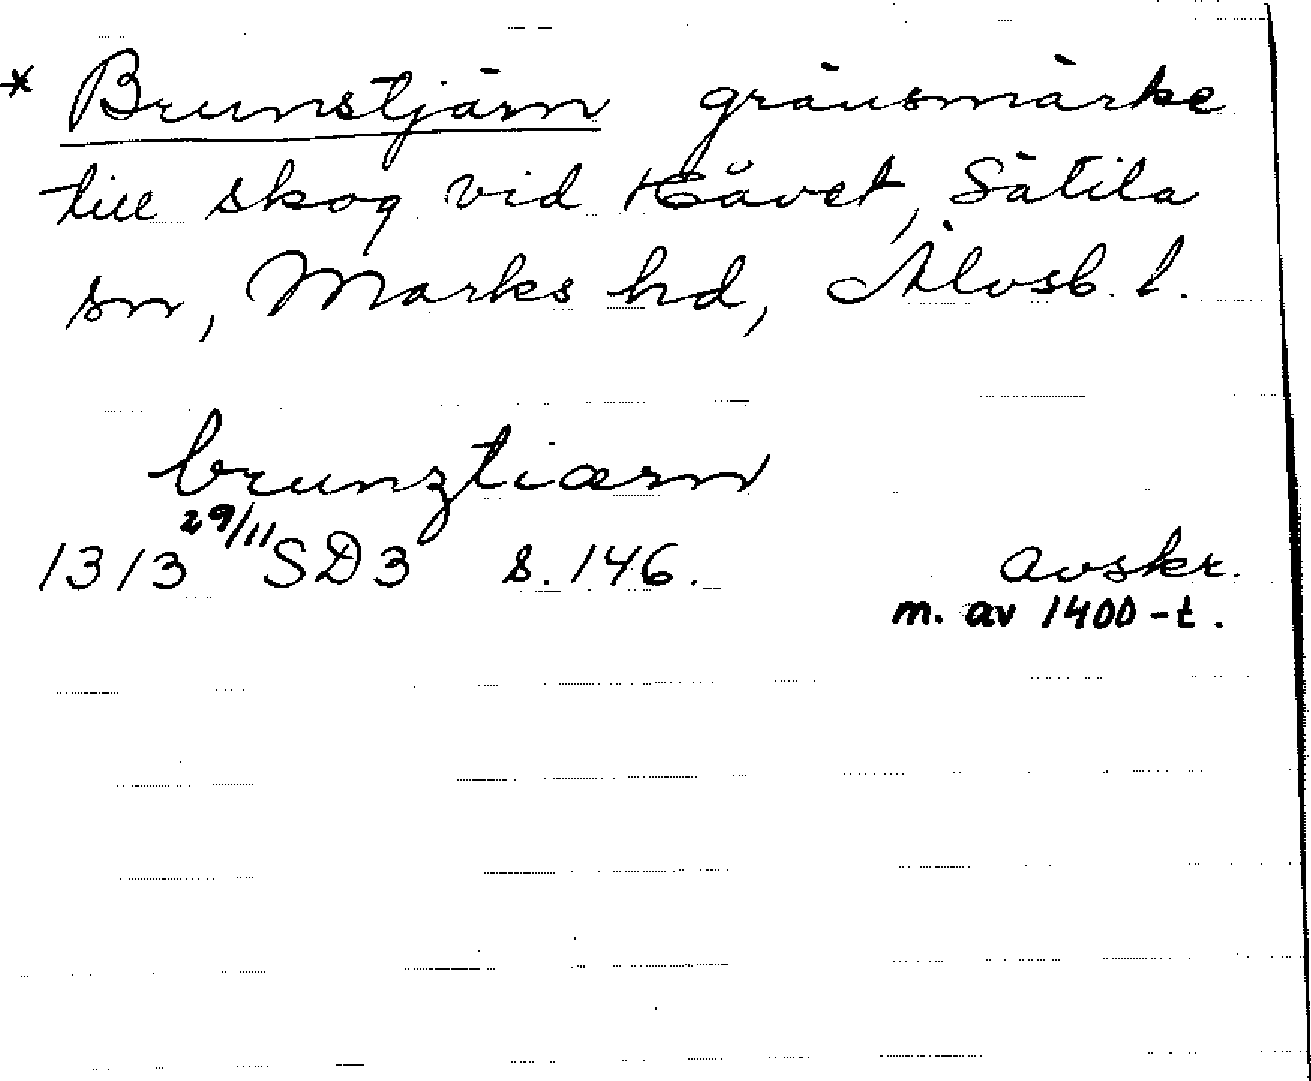 * Brunstjärn gränsmärke
till skog vid Håvet, Sätila
sn, Marks hd, Älvsb. l.
brunztiærn
1313 29/11 SD3 s. 146. avskr.
m. av 1400-t.